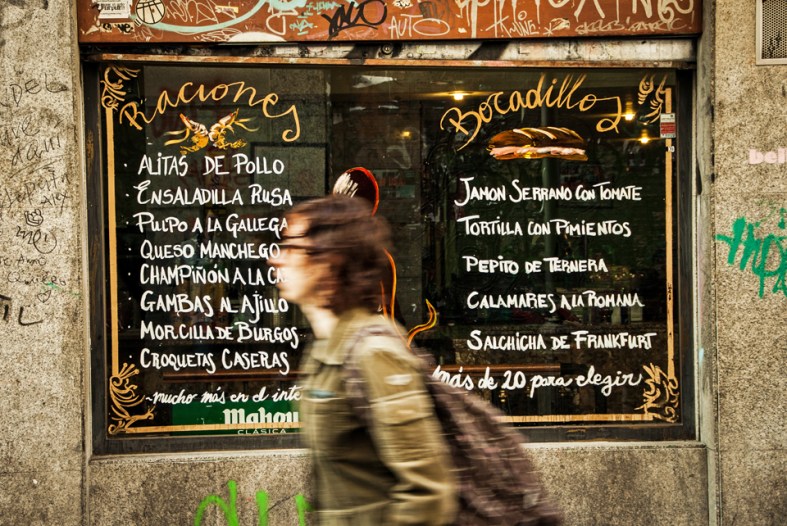 AUTO
Raciones
· ALITAS DE POLLO
· ENSALADILLA RUSA
· PULPO A LA GALLEGA
· QUESO MANCHEGO
· CHAMPIÑÓN A LA
· GAMBAS AL AJILLO
· MORCILLA DE BURGOS
· CROQUETAS CASERAS
~mucho más en el
Mahou
CLÁSICA
Bocadillos
JAMON SERRANO CON TOMATE
TORTILLA CON PIMIENTOS
PEPITO DE TERNERA
CALAMARES A LA ROMANA
SALCHICHA DE FRANKFURT
más de 20 para elegir